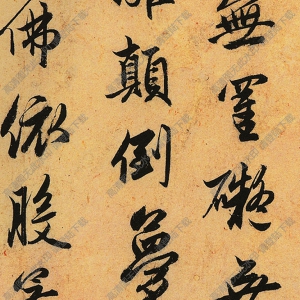 無罣礙無
離顛倒夢
佛依般若